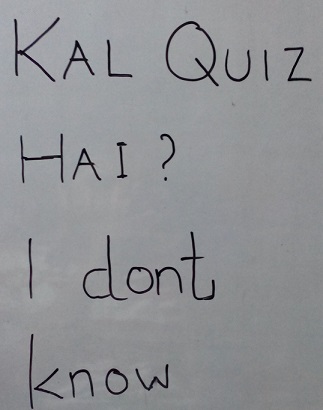 KAL QUIZ
HAI ?
I dont
know